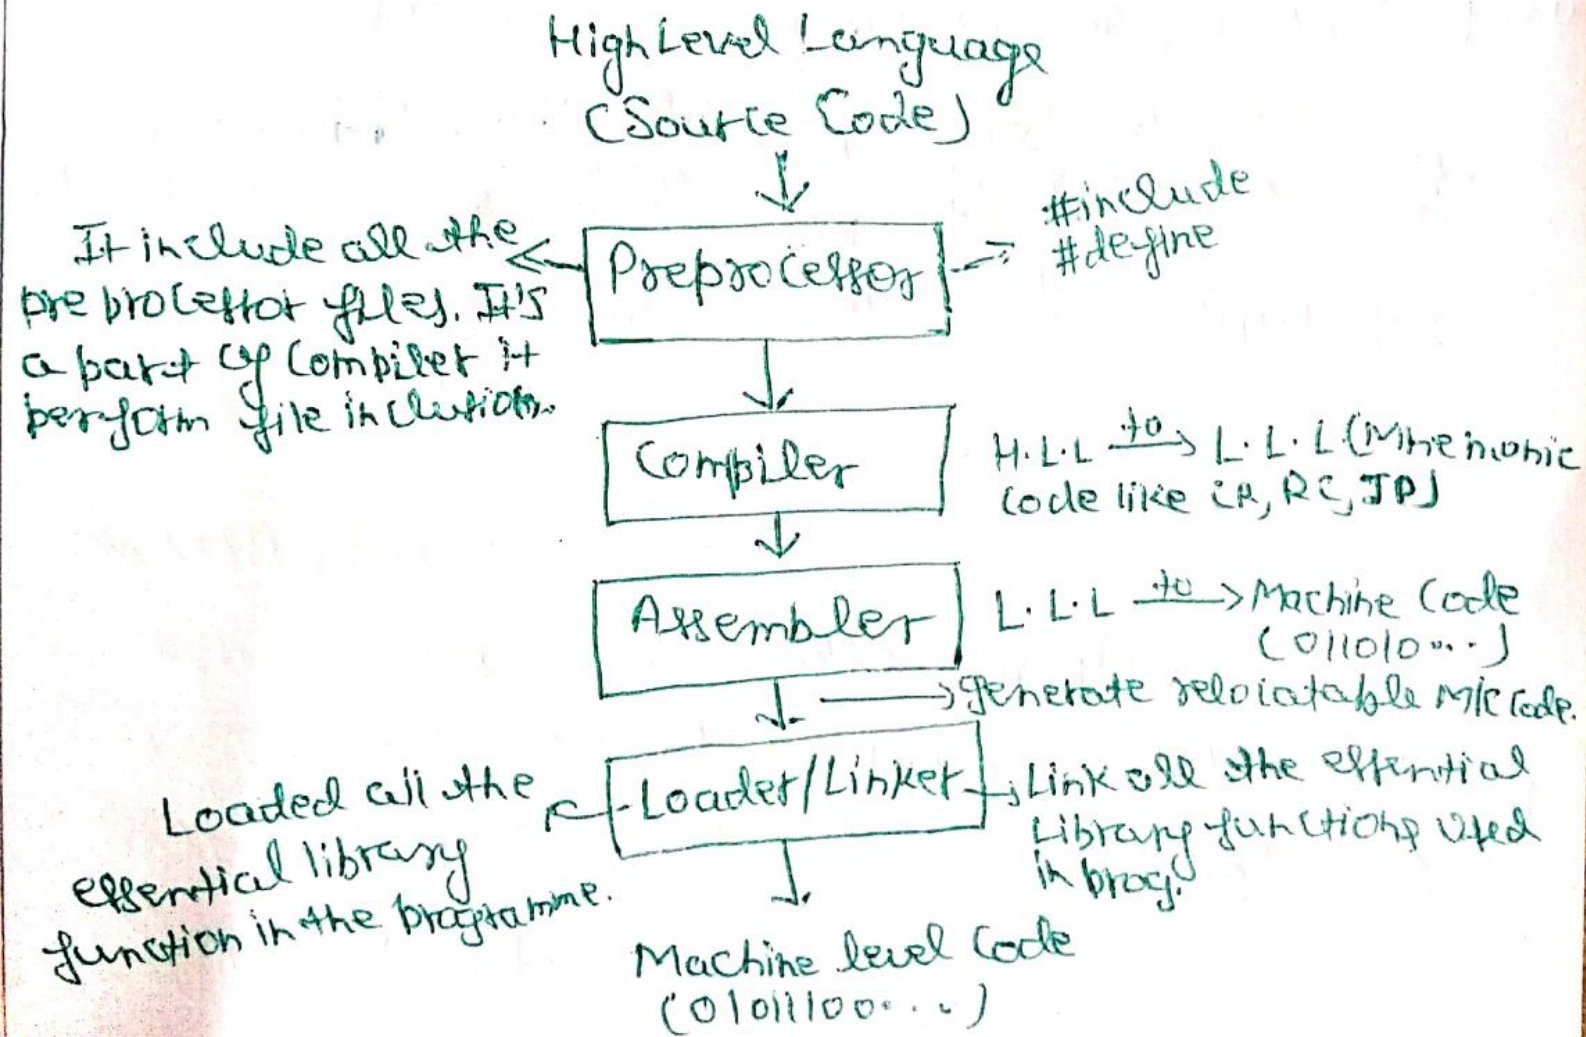 High Level Language
(Source Code)
#include
#define
It include all the
preprocessor files. It's
a part of compiler it
perform file inclusion.
Preprocessor
Compiler
H.L.L to L.L.L (Mnemonic
code like
Assembler
L.L.L to Machine Code
(011010...)
generate relocatable M/C Code.
Loader/Linker
Loaded all the
essential library
function in the programme.
Link all the essential
Library functions used
in prog.
Machine level Code
(01011100...)